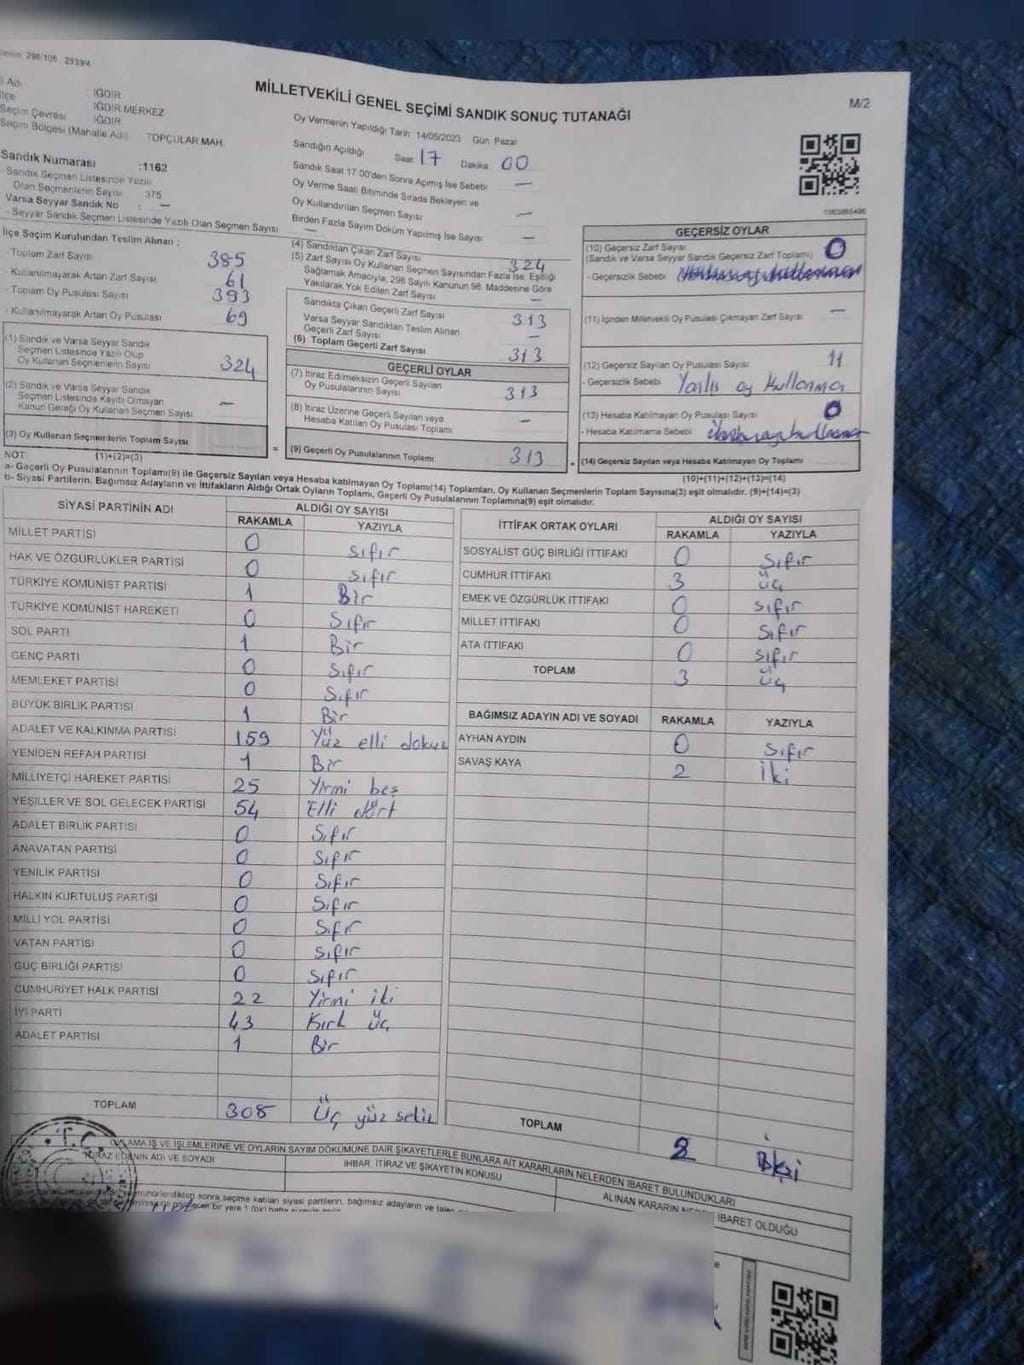 MİLLETVEKİLİ GENEL SEÇİMİ SANDIK SONUÇ TUTANAĞI
M/2
İl Adı : IĞDIR
İlçe IĞDIR MERKEZ
Seçim Çevresi : IĞDIR
Seçim Bölgesi (Mahalle Adı) TOPÇULAR MAH.
Sandık Numarası :1162
Sandık Seçmen Listesinde Yazılı
Olan Seçmenlerin Sayısı 375
Varsa Seyyar Sandık No : —
- Seyyar Sandık Seçmen Listesinde Yazılı Olan Seçmen Sayısı —
Oy Vermenin Yapıldığı Tarih :14/05/2023 Gün: Pazar
Sandığın Açıldığı Saat 17 Dakika 00
Sandık Saat 17.00'den Sonra Açımış İse Sebebi —
Oy Verme Saati Bitiminde Sırada Bekleyen ve
Oy Kullandırılan Seçmen Sayısı —
Birden Fazla Sayım Döküm Yapılmış İse Sayısı —
İlçe Seçim Kurulundan Teslim Alınan ;
- Toplam Zarf Sayısı 385
- Kullanılmayarak Artan Zarf Sayısı 61
- Toplam Oy Pusulası Sayısı 393
- Kullanılmayarak Artan Oy Pusulası 69
(1) Sandık ve Varsa Seyyar Sandık
Seçmen Listesinde Yazılı Olup
Oy Kullanan Seçmenlerin Sayısı 324
(2) Sandık ve Varsa Seyyar Sandık
Seçmen Listesinde Kayıtlı Olmayan
Kanun Gereği Oy Kullanan Seçmen Sayısı —
(3) Oy Kullanan Seçmenlerin Toplam Sayısı
(4) Sandıktan Çıkan Zarf Sayısı 324
(5) Zarf Sayısı Oy Kullanan Seçmen Sayısından Fazla İse, Eşitliği
Sağlamak Amacıyla, 298 Sayılı Kanunun 98. Maddesine Göre
Yakılarak Yok Edilen Zarf Sayısı —
Sandıkta Çıkan Geçerli Zarf Sayısı 313
Varsa Seyyar Sandıktan Teslim Alınan
Geçerli Zarf Sayısı —
(6) Toplam Geçerli Zarf Sayısı 313
GEÇERLİ OYLAR
(7) İtiraz Edilmeksizin Geçerli Sayılan
Oy Pusulalarının Sayısı 313
(8) İtiraz Üzerine Geçerli Sayılan veya
Hesaba Katılan Oy Pusulası Toplamı —
= (9) Geçerli Oy Pusulalarının Toplamı 313 +
GEÇERSİZ OYLAR
(10) Geçersiz Zarf Sayısı 0
(Sandık ve Varsa Seyyar Sandık Zarf Toplamı)
- Geçersizlik Sebebi
(11) İçinden Milletvekili Oy Pusulası Çıkmayan Zarf Sayısı —
(12) Geçersiz Sayılan Oy Pusulası Sayısı 11
- Geçersizlik Sebebi Yanlış oy kullanma
(13) Hesaba Katılmayan Oy Pusulası Sayısı 0
- Hesaba Katılmama Sebebi
(14) Geçersiz Sayılan veya Hesaba Katılmayan Oy Pusulası Toplamı
NOT: (1)+(2)=(3)
(10)+(11)+(12)+(13)=(14)
a- Geçerli Oy Pusulalarının Toplamı(9) ile Geçersiz Sayılan veya Hesaba katılmayan Oy Pusulası Toplamı(14) Toplamları, Oy Kullanan Seçmenlerin Toplam Sayısına(3) eşit olmalıdır. (9)+(14)=(3)
b- Siyasi Partilerin, Bağımsız Adayların ve İttifakların Aldığı Ortak Oyların Toplamı, Geçerli Oy Pusulalarının Toplamına(9) eşit olmalıdır.
SİYASİ PARTİNİN ADI ALDIĞI OY SAYISI
RAKAMLA YAZIYLA
MİLLET PARTİSİ 0 sıfır
HAK VE ÖZGÜRLÜKLER PARTİSİ 0 sıfır
TÜRKİYE KOMÜNİST PARTİSİ 1 Bir
TÜRKİYE KOMÜNİST HAREKETİ 0 Sıfır
SOL PARTİ 1 Bir
GENÇ PARTİ 0 Sıfır
MEMLEKET PARTİSİ 0 Sıfır
BÜYÜK BİRLİK PARTİSİ 1 Bir
ADALET VE KALKINMA PARTİSİ 159 Yüz elli dokuz
YENİDEN REFAH PARTİSİ 1 Bir
MİLLİYETÇİ HAREKET PARTİSİ 25 Yirmi beş
YEŞİLLER VE SOL GELECEK PARTİSİ 54 Elli dört
ADALET BİRLİK PARTİSİ 0 Sıfır
ANAVATAN PARTİSİ 0 Sıfır
YENİLİK PARTİSİ 0 Sıfır
HALKIN KURTULUŞ PARTİSİ 0 Sıfır
MİLLİ YOL PARTİSİ 0 Sıfır
VATAN PARTİSİ 0 Sıfır
GÜÇ BİRLİĞİ PARTİSİ 0 Sıfır
CUMHURİYET HALK PARTİSİ 22 Yirmi iki
İYİ PARTİ 43 Kırk üç
ADALET PARTİSİ 1 Bir
TOPLAM 308 Üç yüz sekiz
İTTİFAK ORTAK OYLARI ALDIĞI OY SAYISI
RAKAMLA YAZIYLA
SOSYALİST GÜÇ BİRLİĞİ İTTİFAKI 0 Sıfır
CUMHUR İTTİFAKI 3 üç
EMEK VE ÖZGÜRLÜK İTTİFAKI 0 sıfır
MİLLET İTTİFAKI 0 Sıfır
ATA İTTİFAKI 0 sıfır
TOPLAM 3 üç
BAĞIMSIZ ADAYIN ADI VE SOYADI RAKAMLA YAZIYLA
AYHAN AYDIN 0 Sıfır
SAVAŞ KAYA 2 İki
TOPLAM 2 İki
T.C.
OYLAMA İŞ VE İŞLEMLERİNE VE OYLARIN SAYIM DÖKÜMÜNE DAİR ŞİKAYETLERLE BUNLARA AİT KARARLARIN NELERDEN İBARET BULUNDUKLARI
İTİRAZ EDENİN ADI VE SOYADI
İHBAR, İTİRAZ VE ŞİKAYETİN KONUSU
ALINAN KARARIN NEDEN İBARET OLDUĞU